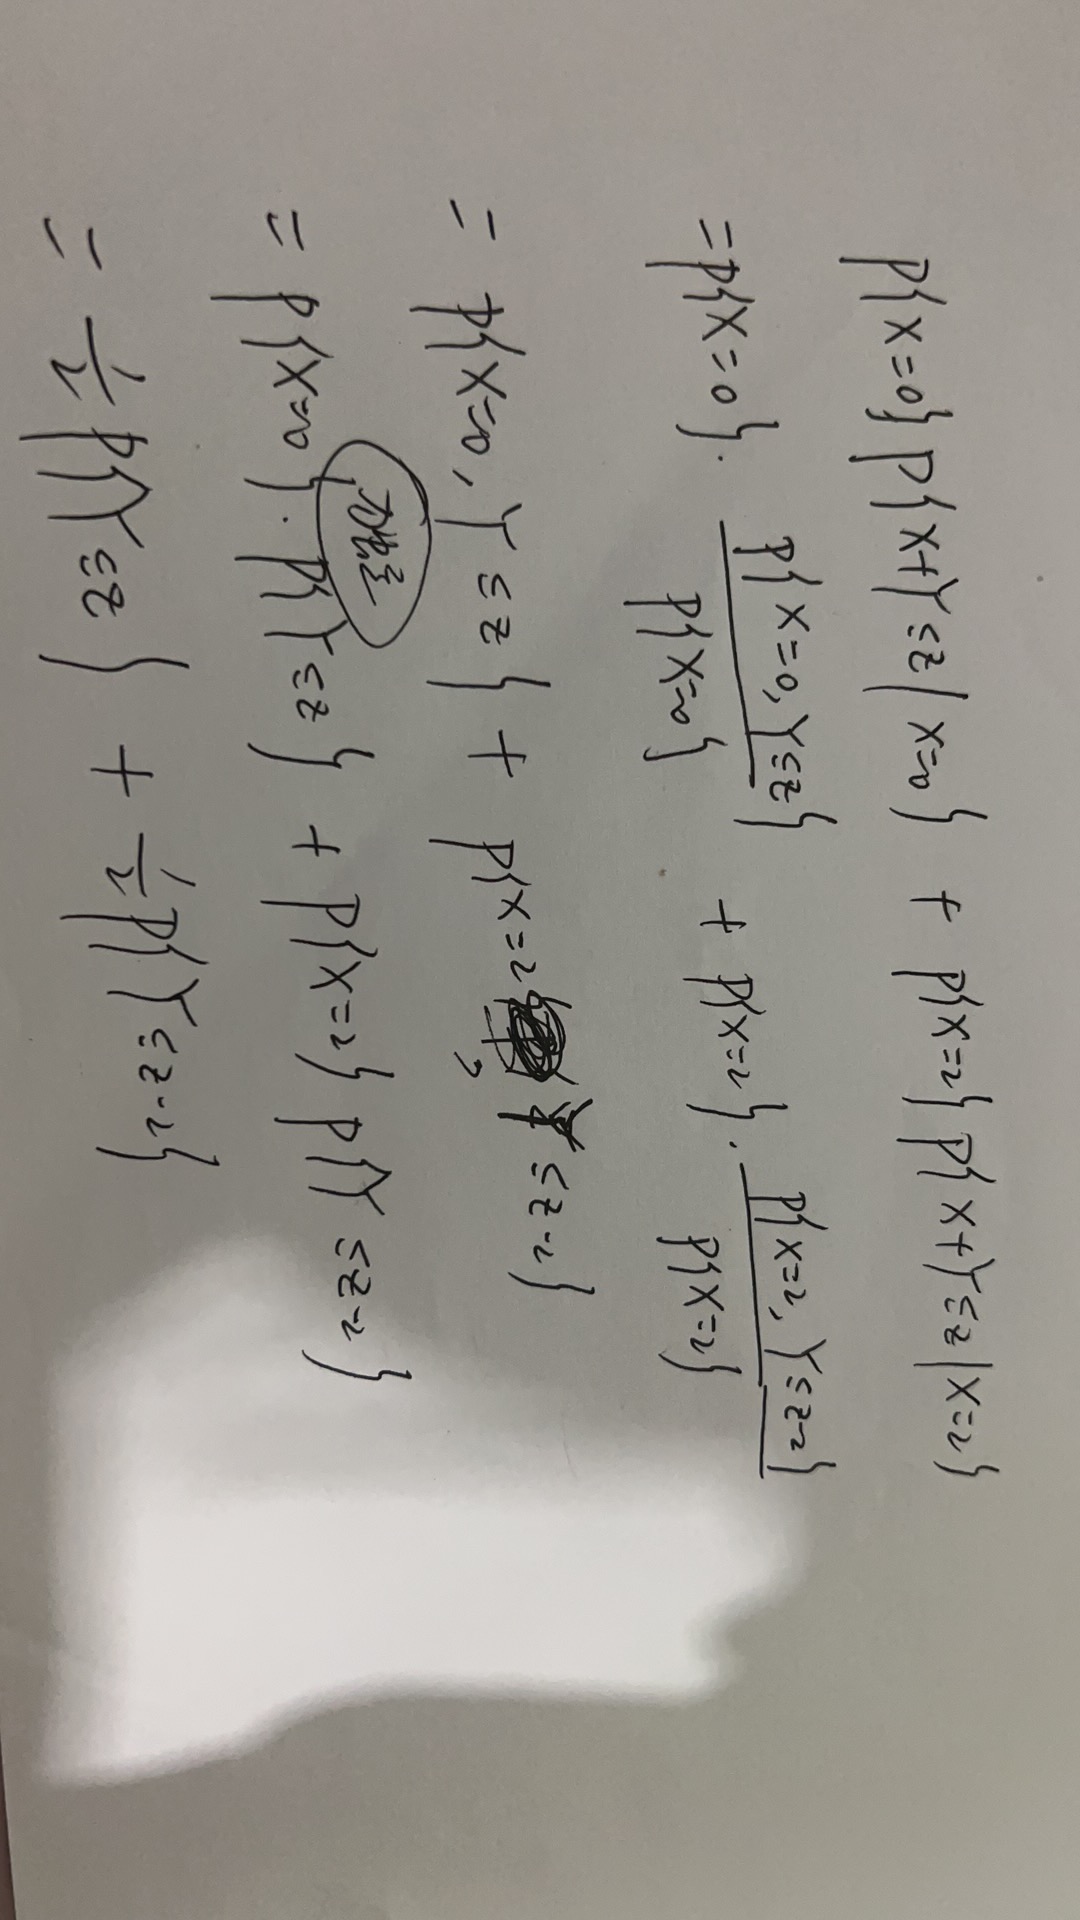 P{X=0}P{X+Y≤z|X=0} + P{X=2}P{X+Y≤z|X=2}
=P{X=0}·P{X=0,Y≤z}/P{X=0} + P{X=2}·P{X=2,Y≤z-2}/P{X=2}
= P{X=0,Y≤z} + P{X=2,Y≤z-2}
独立
= P{X=0}·P{Y≤z} + P{X=2}P{Y≤z-2}
= 1/2 P{Y≤z} + 1/2 P{Y≤z-2}